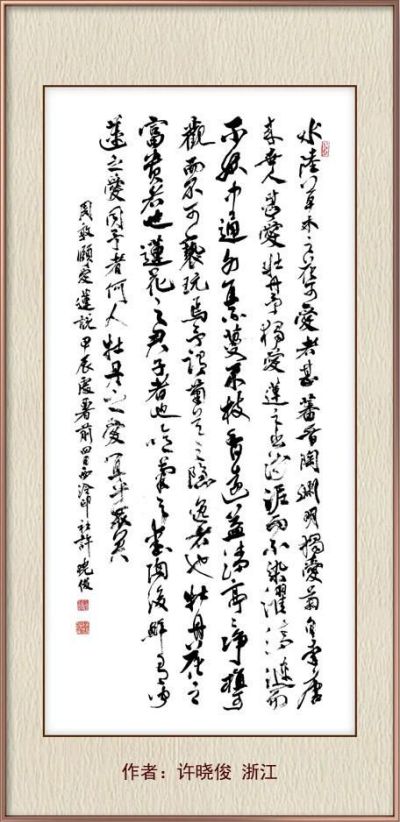 水陸草木之花可愛者甚蕃晉陶淵明獨愛菊自李唐
來世人甚愛牡丹予獨愛蓮之出淤泥而不染濯清漣而
不妖中通外直不蔓不枝香遠益清亭亭淨植可
觀而不可褻玩焉予謂菊花之隱逸者也牡丹花之
富貴者也蓮花之君子者也噫菊之愛陶後鮮有聞
蓮之愛同予者何人牡丹之愛宜乎衆矣
周敦頤愛蓮說甲辰處暑前四日西泠印社許曉俊
作者：许晓俊 浙江